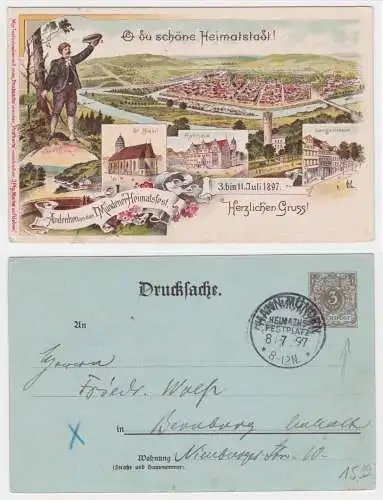 O du schöne Heimatstadt!
St. Blasii
Rathhaus
Langestrasse
3. bis 11. Juli 1897.
Andenken an das Mündener Heimatsfest
Herzlichen Gruss!
Drucksache.
3
HANN. MÜNDEN
HEIMATHS
FESTPLATZ
8 7 97
* 8-12N. *
An
Herrn
Friedr. Wolff
in Bernburg Anhalt
Wohnung Nienburger Str. 10.
(Straße und Hausnummer)
X
15,-